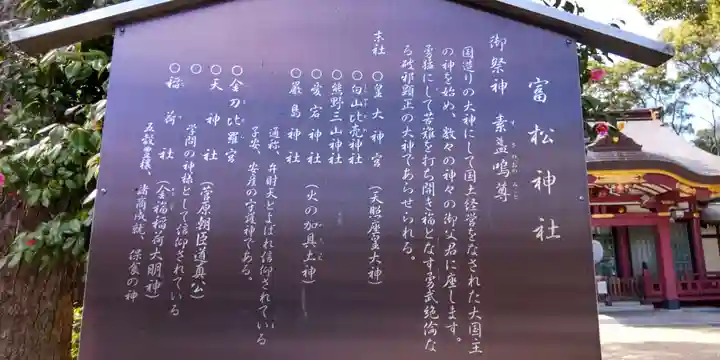 富松神社
御祭神 素盞嗚尊
すさのおのみこと
国造りの大神にして国土経営をなされた大国主
の神を始め、数々の神々の御父君に座します。
勇猛にして苦難を打ち開き福となす勇武絶倫な
る破邪顕正の大神であらせられる。
末社 ○皇大神宮(天照座皇大神)
○白山比売神社
○熊野三山神社
○愛宕神社(火の加具土神)
○厳島神社
通称、弁財天とよばれ信仰されている
子安、安産の守護神である。
○金刀比羅宮
○天神社(菅原朝臣道真公)
学問の神様として信仰されている
○稲荷社(金福稲荷大明神)
五穀豊穣、諸商成就、保食の神